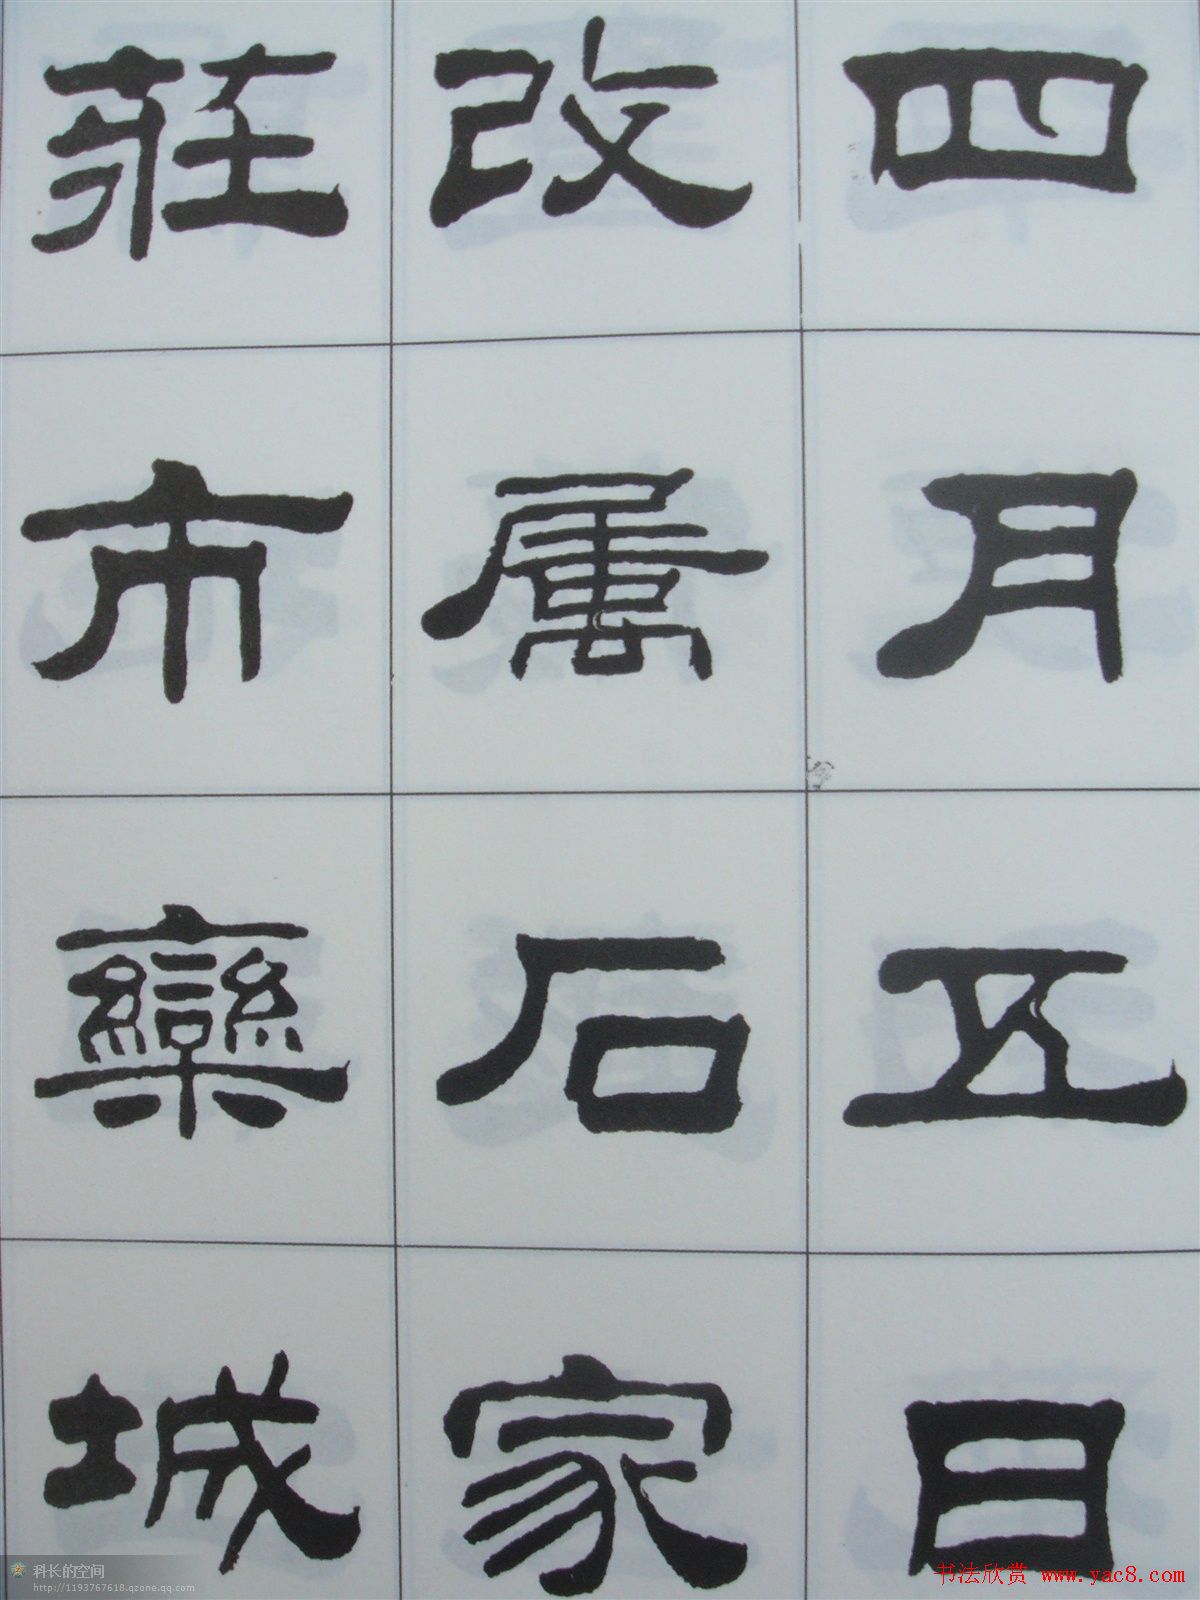 四月五日
改属石家
莊市欒城
科长的空间
http://1193767618.qzone.qq.com
书法欣赏 www.yac8.com